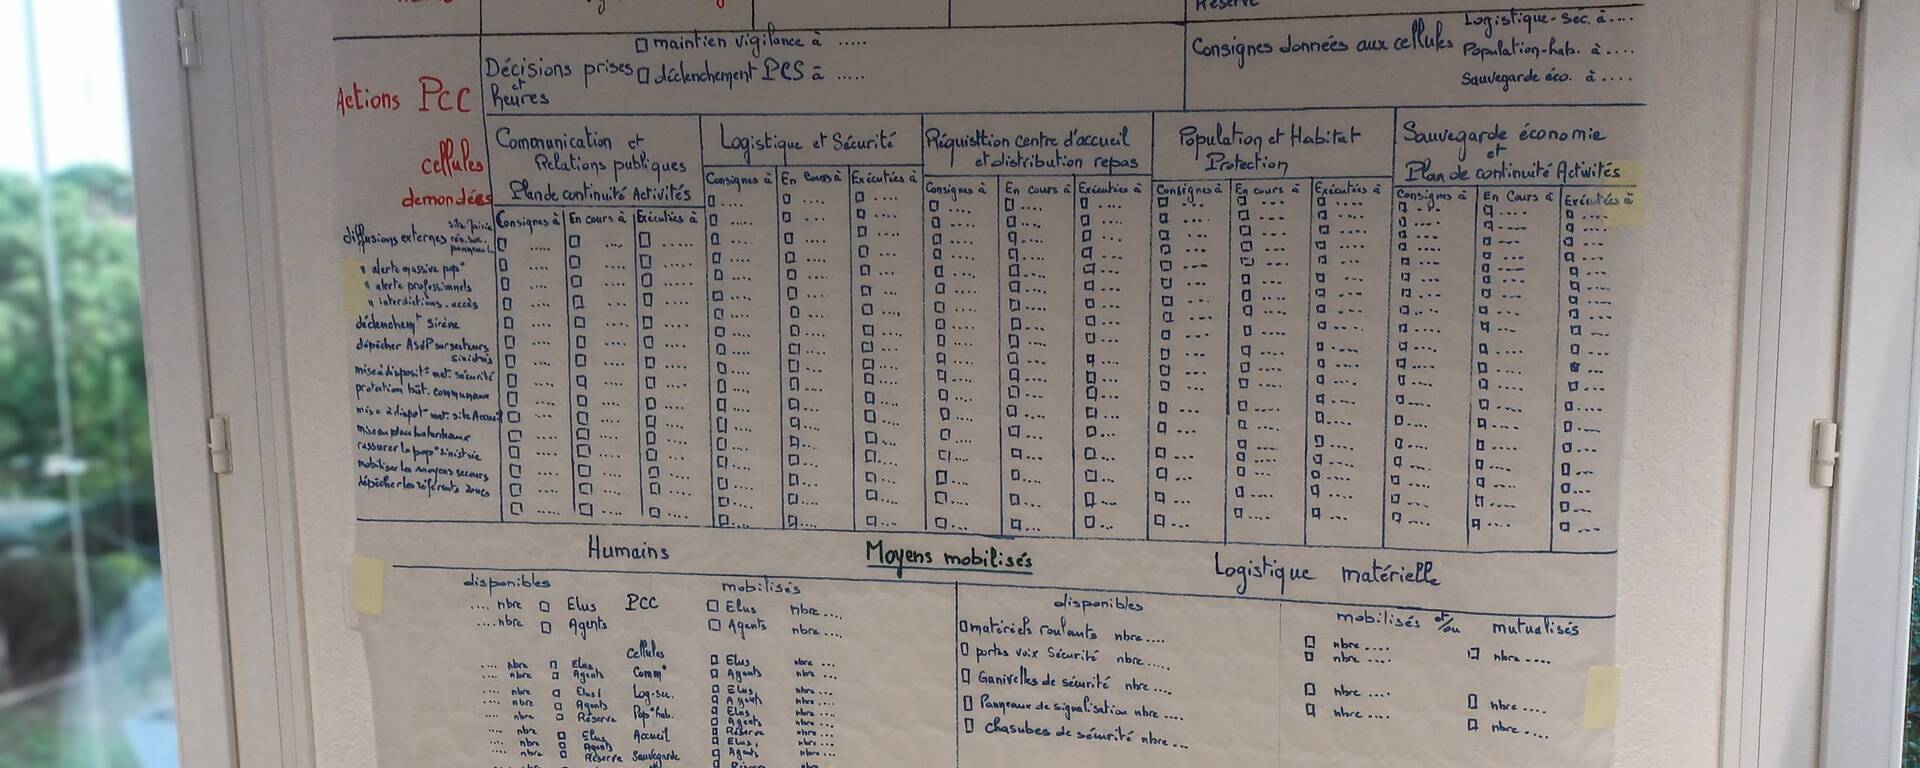 Réserve
Logistique-Séc. à....
maintien vigilance à .....
Consignes données aux cellules
Population-hab. à ....
Décisions prises
déclenchement PCS à .....
Sauvegarde éco. à ....
et
heures
Actions PCC
cellules
demandées
Communication et
Relations publiques
Plan de continuité Activités
Logistique et Sécurité
Réquisition centre d'accueil
et distribution repas
Population et Habitat
Protection
Sauvegarde économie
et
Plan de continuité Activités
Consignes à En cours à Exécutées à
Consignes à En Cours à Exécutées à
Consignes à En cours à Exécutées à
Consignes à En cours à Exécutées à
Consignes à En Cours à Exécutées à
diffusions externes
" alerte massive pop°
" alerte professionnels
" interdictions. accès
déclenchem^t sirène
dépêcher ASdP sur secteurs
sinistrés
mise à disposit° mat. sécurité
protection bât. communaux
mise à dispot° mat. site Accueil
mise en place batardeaux
rassurer la pop° sinistrée
mobiliser les moyens secours
dépêcher les référents zones
Humains
Moyens mobilisés
Logistique matérielle
disponibles
mobilisés
.... nbre Elus PCC Elus nbre....
.... nbre Agents Agents nbre....
cellules
.... nbre Elus Elus nbre ...
.... nbre Agents Comm° Agents nbre ...
.... nbre Elus Log-sec. Elus nbre ...
.... nbre Agents Agents nbre ...
.... nbre Réserve Pop° hab. Elus nbre ...
Agents nbre...
.... nbre Elus Accueil Réserve nbre...
.... nbre Agents Elus nbre...
.... nbre Réserve Sauvegarde Agents nbre...
disponibles
mobilisés et/ou mutualisés
matériels roulants nbre.... nbre ....
portes voix Sécurité nbre..... nbre .... nbre ....
Ganivelles de sécurité nbre .... nbre ....
Panneaux de signalisation nbre .... nbre .... nbre ....
chasubes de sécurité nbre ... nbre ....